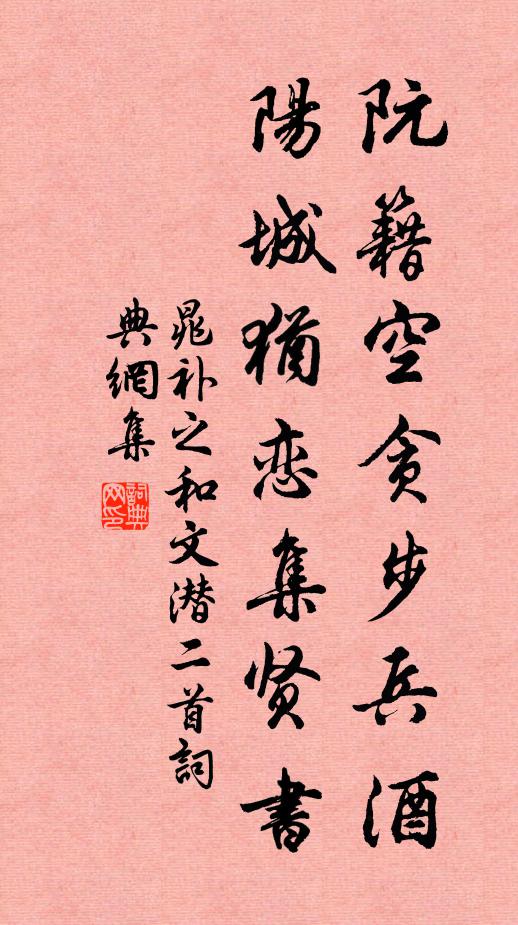 阮籍空贪步兵酒
陽城猶恋集贤書
晁补之和文潜二首詞
典網集
詞典
网印